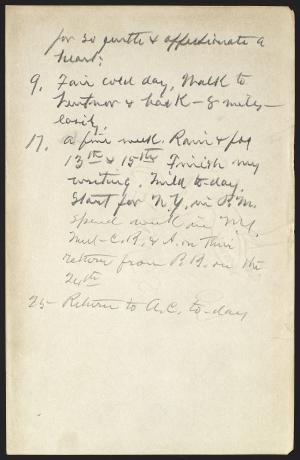 for so gentle & affectionate a
heart:
9. Fair cold day, Walk to
Ventnor & back – 8 miles –
easily.
17. A fine week. Rain & fog
13th & 15th. Finish my
writing. Mild to-day.
Start for N.Y. in P.M.
spend week in N.Y.
Meet C.B. & A. on their
return from P.R. on the
24th
25– Return to A.C. to-day